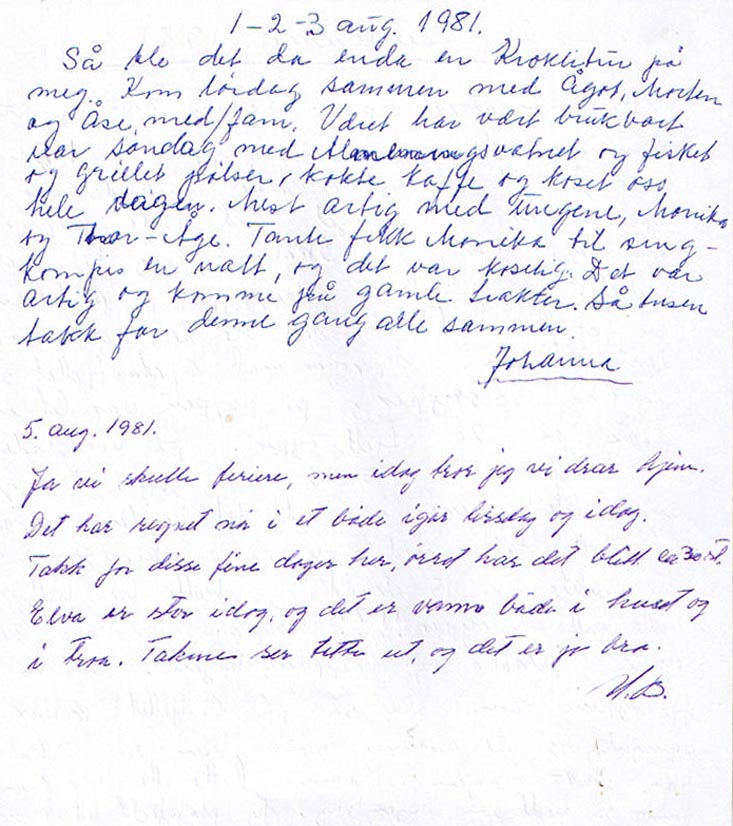 1-2-3 aug. 1981.
Så ble det da enda en Kroklitur på
meg. Kom lørdag sammen med Ågot, Morten
og Åse, med/fam. Været har vært brukbart
var søndag med Almenningsvatnet og fisket
og grillet pølser, kokte kaffe og koset oss
hele dagen. Mest artig med ungene, Monika
og Thor-Åge. Tante fikk Monika til seng-
kompis en natt, og det var koselig. Det var
artig og komme på gamle trakter. Så tusen
takk for denne gang alle sammen.
Johanna
5. aug. 1981.
Ja vi skulle feriere, men idag tror jeg vi drar hjem.
Det har regnet nå i et både igår tirsdag og idag.
Takk for disse fine dager her, ørret har det blitt ca 30 st.
Elva er stor idag, og det er vann både i huset og
i troa. Takene ser tette ut, og det er jo bra.